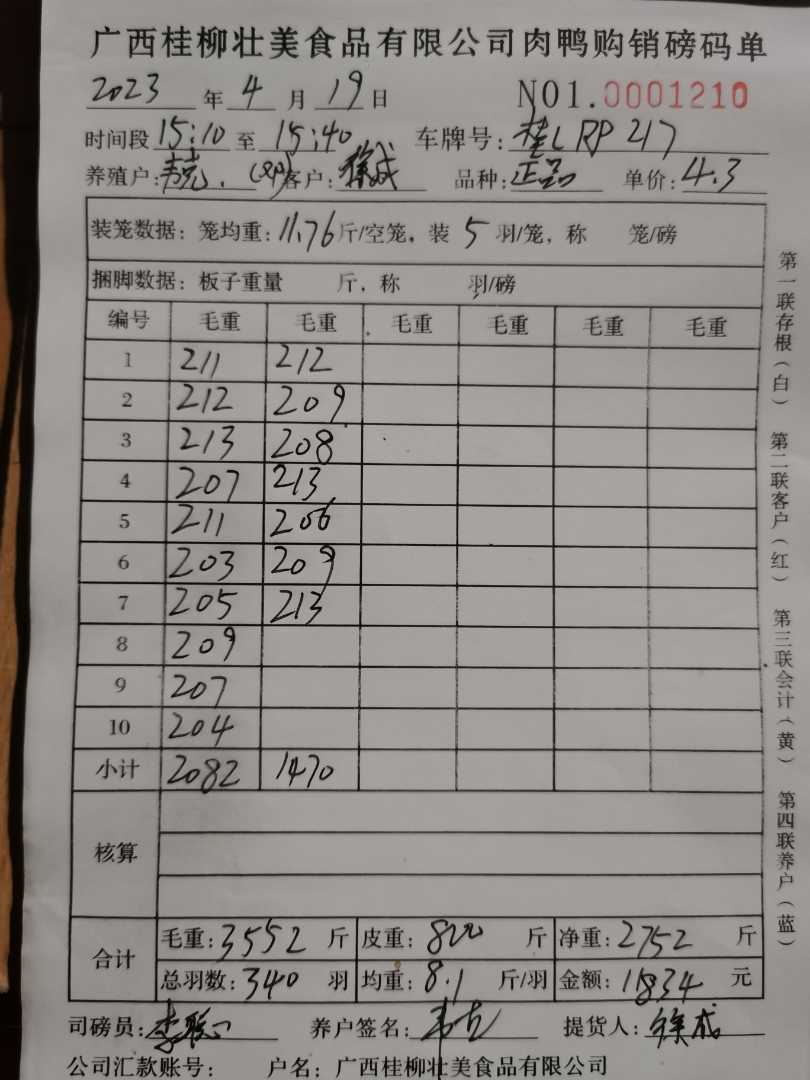 广西桂柳壮美食品有限公司肉鸭购销磅码单
2023 年 4 月 19 日 NO1.0001210
时间段 15:10 至 15:40 车牌号: 桂L RP 217
养殖户: 客户: 徐成 品种: 正品 单价: 4.3
装笼数据: 笼均重: 11.76 斤/空笼, 装 5 羽/笼, 称 笼/磅
捆脚数据: 板子重量 斤, 称 羽/磅
编号 毛重 毛重 毛重 毛重 毛重 毛重
1 211 212
2 212 209
3 213 208
4 207 213
5 211 206
6 203 209
7 205 213
8 209
9 207
10 204
小计 2082 1470
核算
合计 毛重: 3552 斤 皮重: 800 斤 净重: 2752 斤
总羽数: 340 羽 均重: 8.1 斤/羽 金额: 11834 元
司磅员: 养户签名: 提货人: 徐成
公司汇款账号: 户名: 广西桂柳壮美食品有限公司
第一联存根(白) 第二联客户(红) 第三联会计(黄) 第四联养户(蓝)